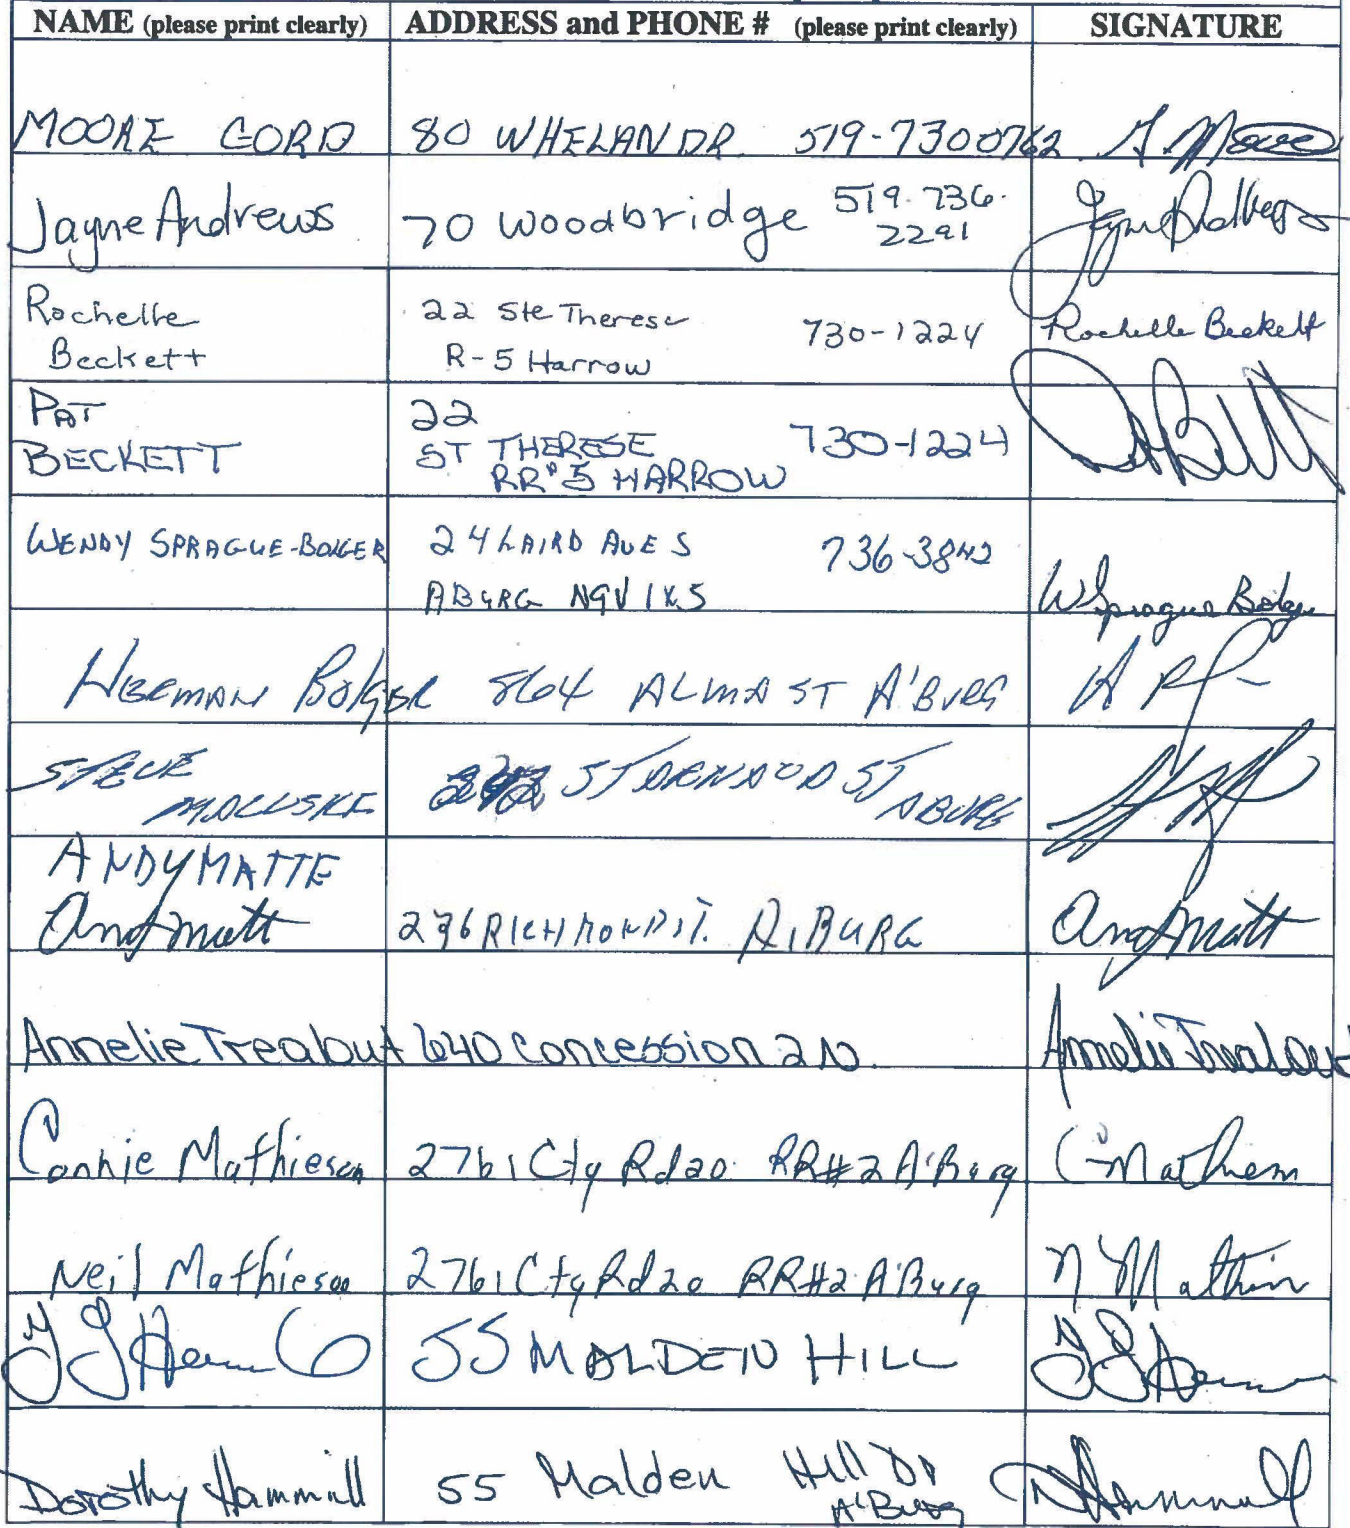 NAME (please print clearly) ADDRESS and PHONE # (please print clearly) SIGNATURE
MOORE GORD 80 WHELAN DR. 519-7300762 G. Moore
Jayne Andrews 70 Woodbridge 519-736-
2291
Rochelle 22 Ste Therese 730-1224 Rochelle Beckett
Beckett R-5 Harrow
PAT 22
BECKETT ST THERESE 730-1224
RR#5 HARROW
WENDY SPRAGUE-BOLGER 24 LAIRD AVE S 736-3842
ABURG N9V 1X5 W Sprague Bolger
HERMAN BOLGER 864 ALMA ST A'BURG
STEVE ST
ABURG
ANDY MATTE
Andy Matt 296 RICHMOND ST. A,BURG Andy Matt
Annelie Trealout 640 Concession 2 N. Annelie Trealout
Connie Mathieson 2761 Cty Rd 20 RR#2 A'Burg C Mathieson
Neil Mathieson 2761 Cty Rd 20 RR#2 A'Burg N Mathieson
55 MALDEN HILL
Dorothy Hammill 55 Malden Hill Dr D Hammill
A'Burg